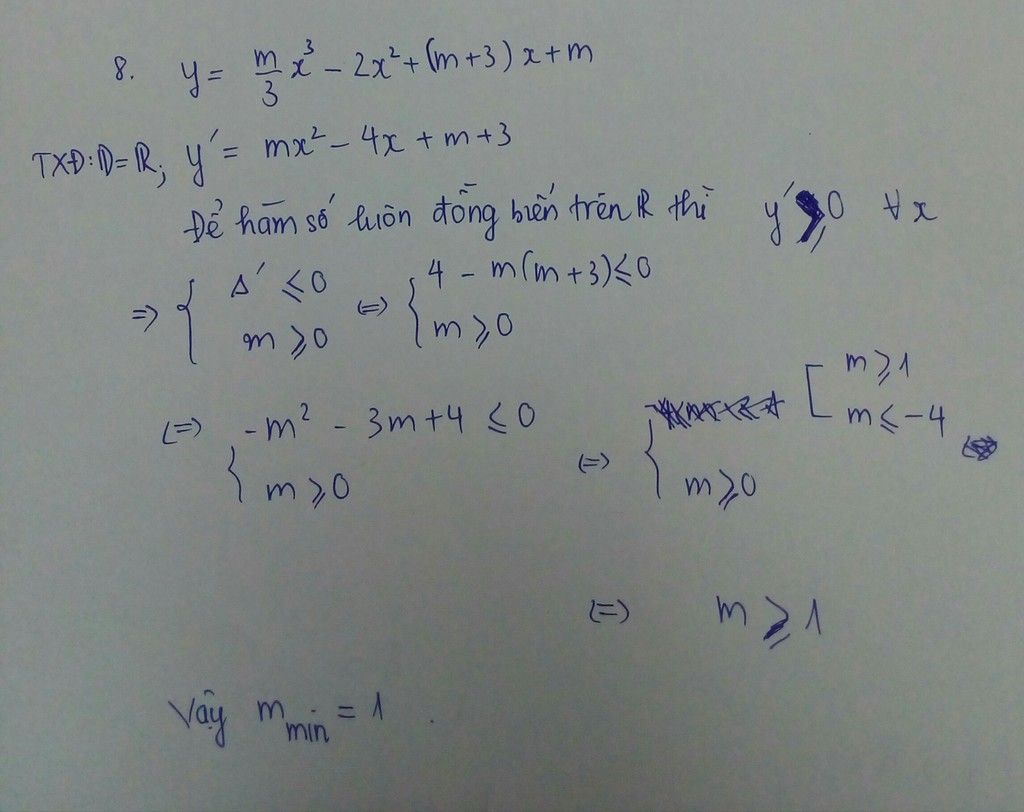 8. y = m/3 x³ - 2x² + (m+3) x + m
TXĐ: D = ℝ; y' = mx² - 4x + m + 3
Để hàm số luôn đồng biến trên ℝ thì y' ⩾ 0 ∀x
=> { Δ' ⩽ 0 (=) { 4 - m(m+3) ⩽ 0
m ⩾ 0 m ⩾ 0
(=) { -m² - 3m + 4 ⩽ 0 (=) { [ m ⩾ 1
m ⩽ -4
m ⩾ 0 m ⩾ 0
(=) m ⩾ 1
Vậy m min = 1 .